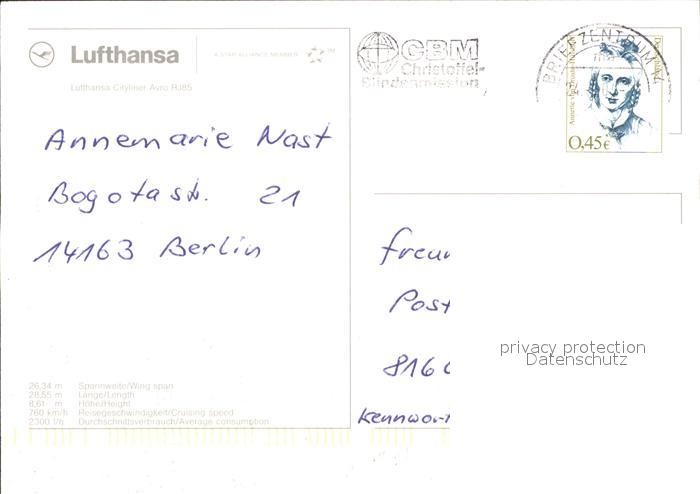 Lufthansa
A STAR ALLIANCE MEMBER
TM
Lufthansa Cityliner Avro RJ85
CBM
Christoffel-
Blindenmission
BRIEFZENTRUM
Deutschland
0,45€
Annemarie Nast
Bogotastr. 21
14163 Berlin
Freun
Post
8166
Kennwort
privacy protection
Datenschutz
26,34 m Spannweite/Wing span
28,55 m Länge/Length
8,61 m Höhe/Height
760 km/h Reisegeschwindigkeit/Cruising speed
2300 l/h Durchschnittsverbrauch/Average consumption